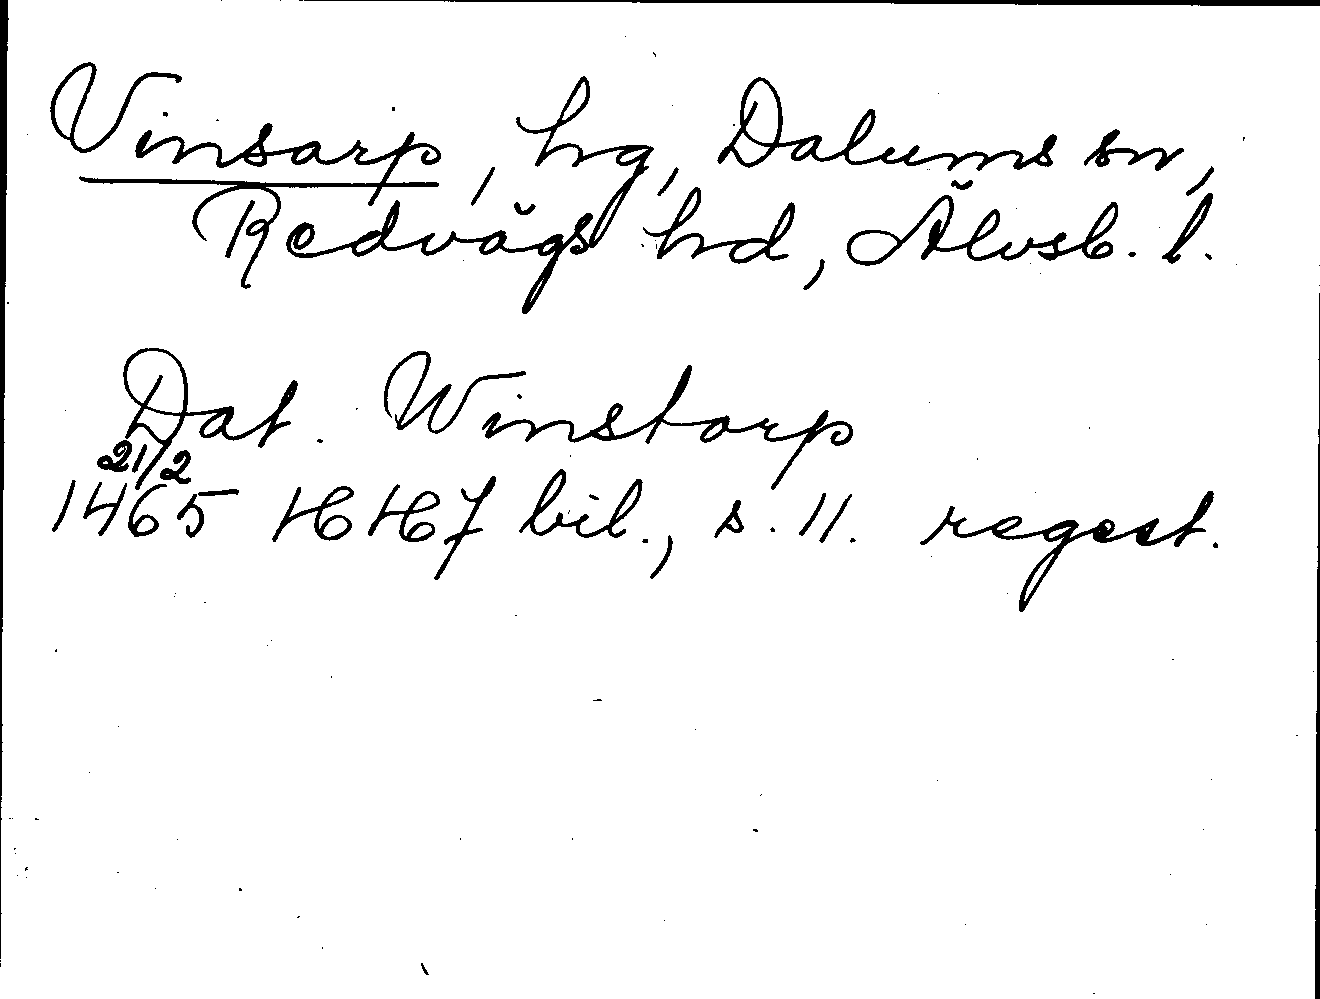 Vinsarp, hg, Dalums sn,
Redvägs hd, Älvsb. l.
Dat. Winstorp
21/2
1465 HH 7 bil., s. 11. regest.